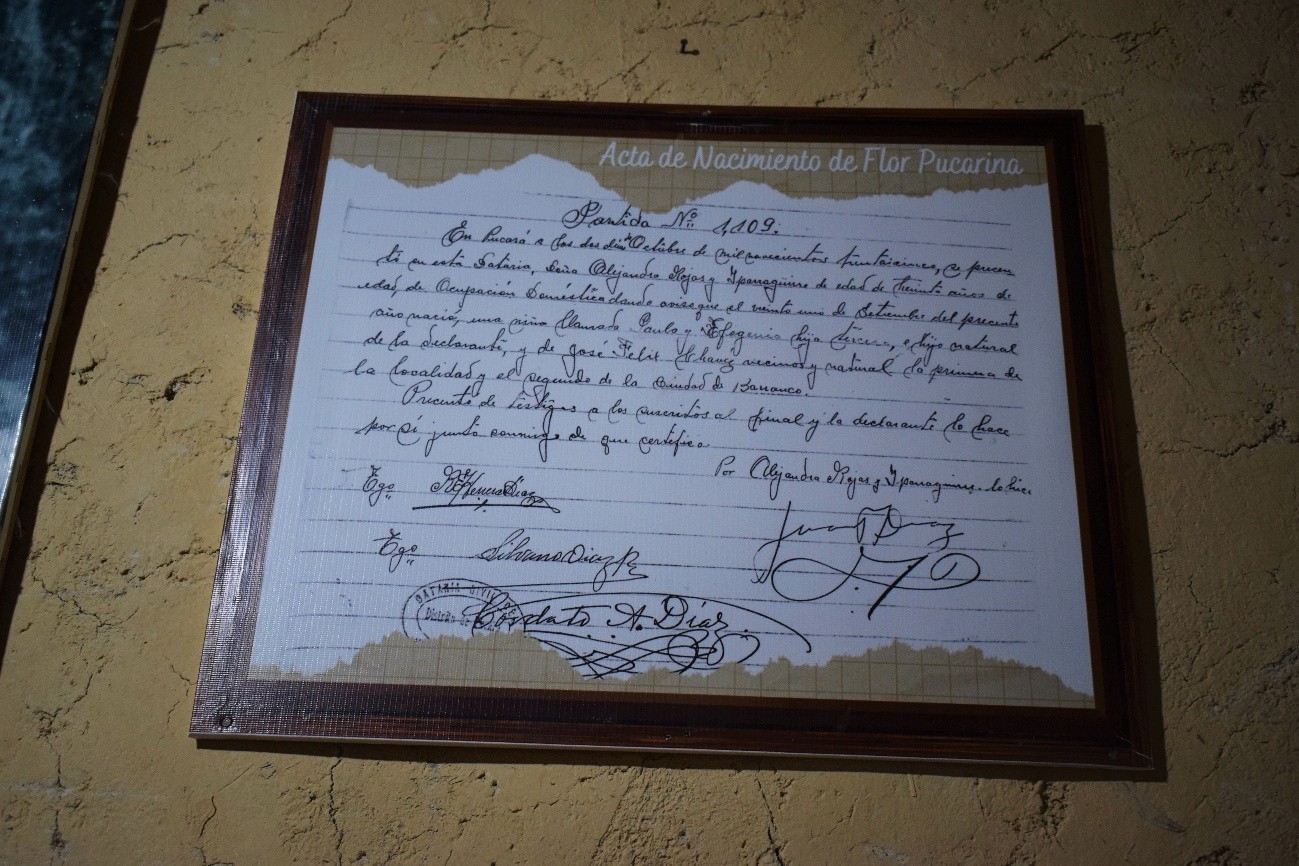 Acta de Nacimiento de Flor Pucarina
Partida Nº 1109.
En Pucará a los dos días Octubre de mil novecientos treintaicinco, se presen
tó en esta Dataria, Doña Alejandra Rojas y Yparraguirre de edad de treinta años de
edad, de Ocupación Doméstica dando aviso que el veinte uno de Setiembre del presente
año nació, una niña llamada Paula y Efegenia hija tercera, e hijo natural
de la declarante, y de José Felix Chavez vecinos y natural la primera de
la localidad y el segundo de la Ciudad de Barranco.
Presente de testigos a los suscritos al final y la declarante lo hace
por sí junto conmigo de que certifico
Por Alejandra Rojas y Yparraguirre lo hice
Tgo. Díaz
Juan Díaz
Tgo. Silvano Díaz R
DATARIA CIVIL
Distrito de
Cordato A. Díaz